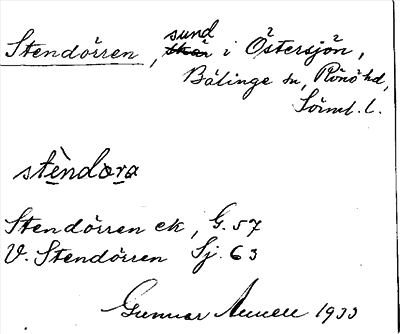 Stendörren, sund i Östersjön,
Bälinge sn, Rönö hd,
Sörml. l.
stèndɷrɷ
Stendörren ek, G. 57
V. Stendörren Sj. 63
Gunnar 1933